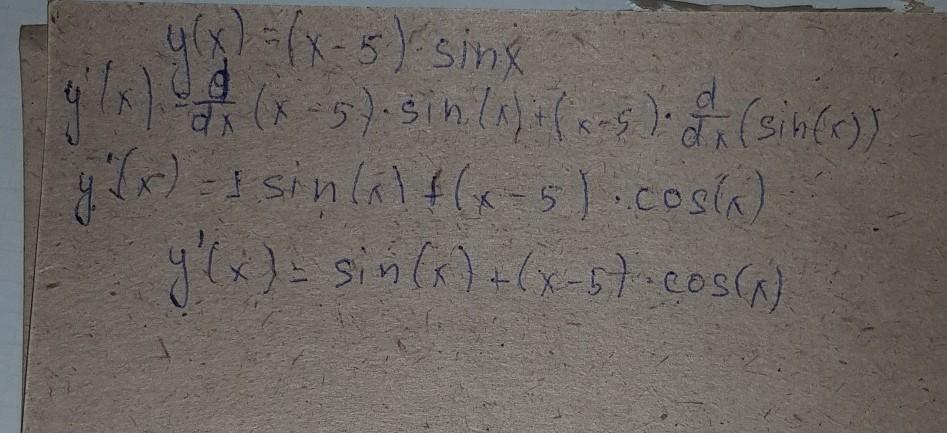 y(x) = (x - 5) · sinx
y'(x) = d/dx (x - 5) · sin(x) + (x - 5) · d/dx (sin(x))
y'(x) = 1 sin(x) + (x - 5) · cos(x)
y'(x) = sin(x) + (x - 5) · cos(x)